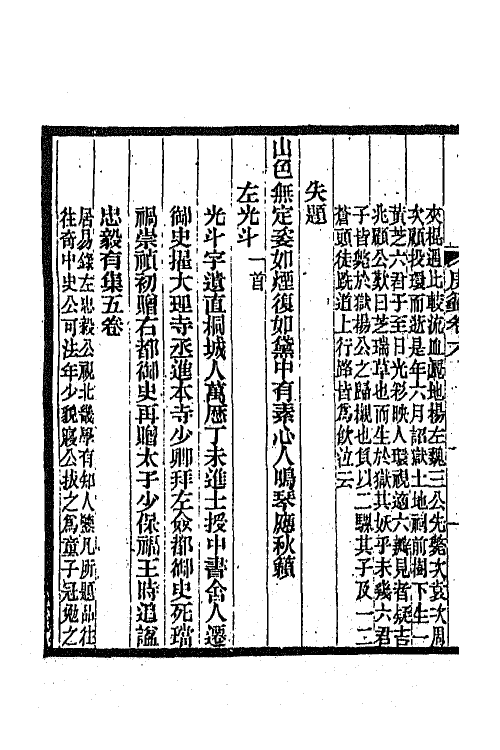 夾棍遇比較流血漉地楊左魏三公先斃次袁次周
次顧投環而逝是年六月詔獄土地祠前樹下生一
黃芝六君子至日光彩映人環視適六瓣見者疑吉
兆顧公歎曰芝瑞草也而生於獄其妖乎未幾六君
子皆斃於獄楊公之歸櫬也負以二騾其子及一二
蒼頭徒跣道上行路皆為飲泣云
失題
山色無定姿如煙復如黛中有素心人鳴琴應秋籟
左光斗一首
光斗字遺直桐城人萬歷丁未進士授中書舍人遷
御史擢大理寺丞進本寺少卿拜左僉都御史死璫
禍崇禎初贈右都御史再贈太子少保福王時追諡
忠毅有集五卷
居易錄左忠毅公視北畿學有知人鑒凡所題品往
往奇中史公可法年少貌寢公拔之為童子冠勉之